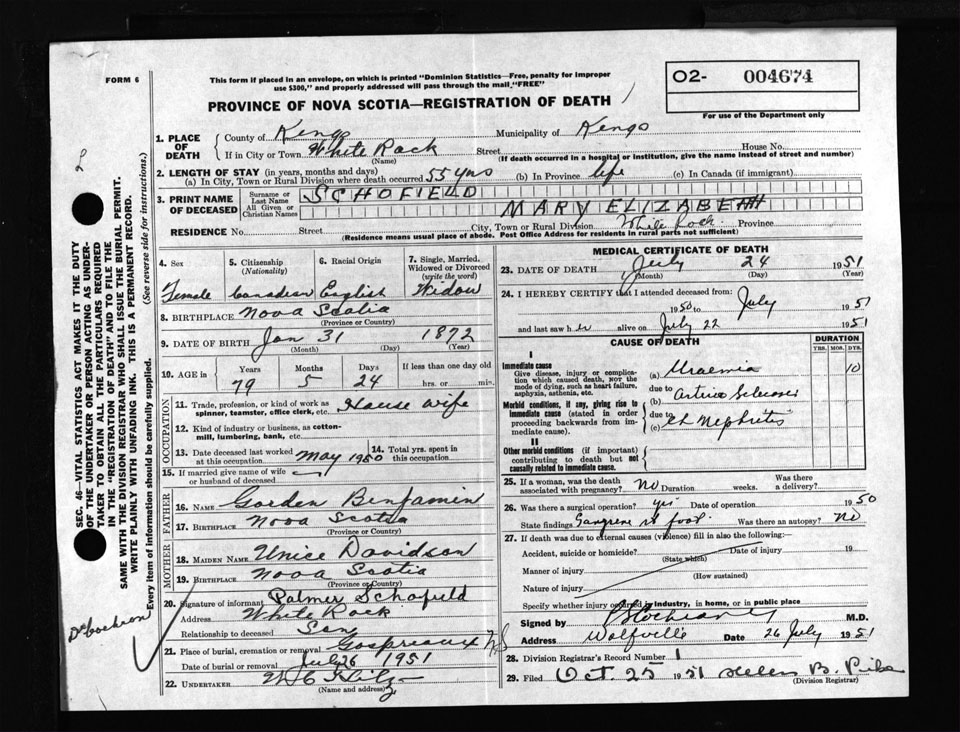 FORM 6
This form if placed in an envelope, on which is printed "Dominion Statistics—Free, penalty for improper
use $300," and properly addressed will pass through the mail, "FREE"
O2- 004674
For use of the Department only
PROVINCE OF NOVA SCOTIA—REGISTRATION OF DEATH
1. PLACE OF DEATH
County of Kings
Municipality of Kings
If in City or Town White Rock Street House No.
(Name) (If death occurred in a hospital or institution, give the name instead of street and number)
2. LENGTH OF STAY (in years, months and days)
(a) In City, Town or Rural Division where death occurred 55 yrs (b) In Province life (c) In Canada (if immigrant)
3. PRINT NAME OF DECEASED
Surname or Last Name SCHOFIELD
All Given or Christian Names MARY ELIZABETH
RESIDENCE No. Street City, Town or Rural Division White Rock Province
(Residence means usual place of abode. Post Office Address for residents in rural parts not sufficient)
4. Sex
Female
5. Citizenship (Nationality)
Canadian
6. Racial Origin
English
7. Single, Married, Widowed or Divorced (write the word)
Widow
8. BIRTHPLACE Nova Scotia
(Province or Country)
9. DATE OF BIRTH Jan 31 1872
(Month) (Day) (Year)
10. AGE in
Years Months Days If less than one day old
79 5 24 hrs. or min.
OCCUPATION
11. Trade, profession, or kind of work as spinner, teamster, office clerk, etc. House wife
12. Kind of industry or business, as cotton-mill, lumbering, bank, etc.
13. Date deceased last worked at this occupation May 1950
14. Total yrs. spent in this occupation
15. If married give name of wife or husband of deceased
FATHER
16. NAME Gorden Benjamin
17. BIRTHPLACE Nova Scotia
(Province or Country)
MOTHER
18. MAIDEN NAME Unice Davidson
19. BIRTHPLACE Nova Scotia
(Province or Country)
20. Signature of informant Palmer Schofield
Address White Rock
Relationship to deceased Son
21. Place of burial, cremation or removal Gaspreaux NS
Date of burial or removal July 26 1951
22. UNDERTAKER
(Name and address)
MEDICAL CERTIFICATE OF DEATH
23. DATE OF DEATH July 24 1951
(Month) (Day) (Year)
24. I HEREBY CERTIFY that I attended deceased from:
1950 to July 1951
and last saw her alive on July 22 1951
CAUSE OF DEATH
DURATION
YRS. MOS. DYS.
I
Immediate cause
Give disease, injury or complication which caused death, NOT the mode of dying, such as heart failure, asphyxia, asthenia, etc.
(a) Uraemia 10
due to
Morbid conditions, if any, giving rise to immediate cause (stated in order proceeding backwards from immediate cause).
(b) Arterio Sclerosis
due to
(c) Ch Nephritis
II
Other morbid conditions (if important) contributing to death but not causally related to immediate cause.
25. If a woman, was the death associated with pregnancy? No Duration weeks. Was there a delivery?
26. Was there a surgical operation? yes Date of operation 1950
State findings Gangrene rt foot Was there an autopsy? No
27. If death was due to external causes (violence) fill in also the following:
Accident, suicide or homicide? Date of injury 19
(State which)
Manner of injury
(How sustained)
Nature of injury
Specify whether injury occurred in industry, in home, or in public place
Signed by Cochrane M.D.
Address Wolfville Date 26 July 1951
28. Division Registrar's Record Number 1
29. Filed Oct. 25 1951 Helen B. Pike
(Division Registrar)
SEC. 46—VITAL STATISTICS ACT MAKES IT THE DUTY
OF THE UNDERTAKER OR PERSON ACTING AS UNDER-
TAKER TO OBTAIN ALL THE PARTICULARS REQUIRED
IN THE "REGISTRATION OF DEATH" AND TO FILE THE
SAME WITH THE DIVISION REGISTRAR WHO SHALL ISSUE THE BURIAL PERMIT.
WRITE PLAINLY WITH UNFADING INK. THIS IS A PERMANENT RECORD.
Every item of information should be carefully supplied. (See reverse side for instructions.)
Dr Cochran